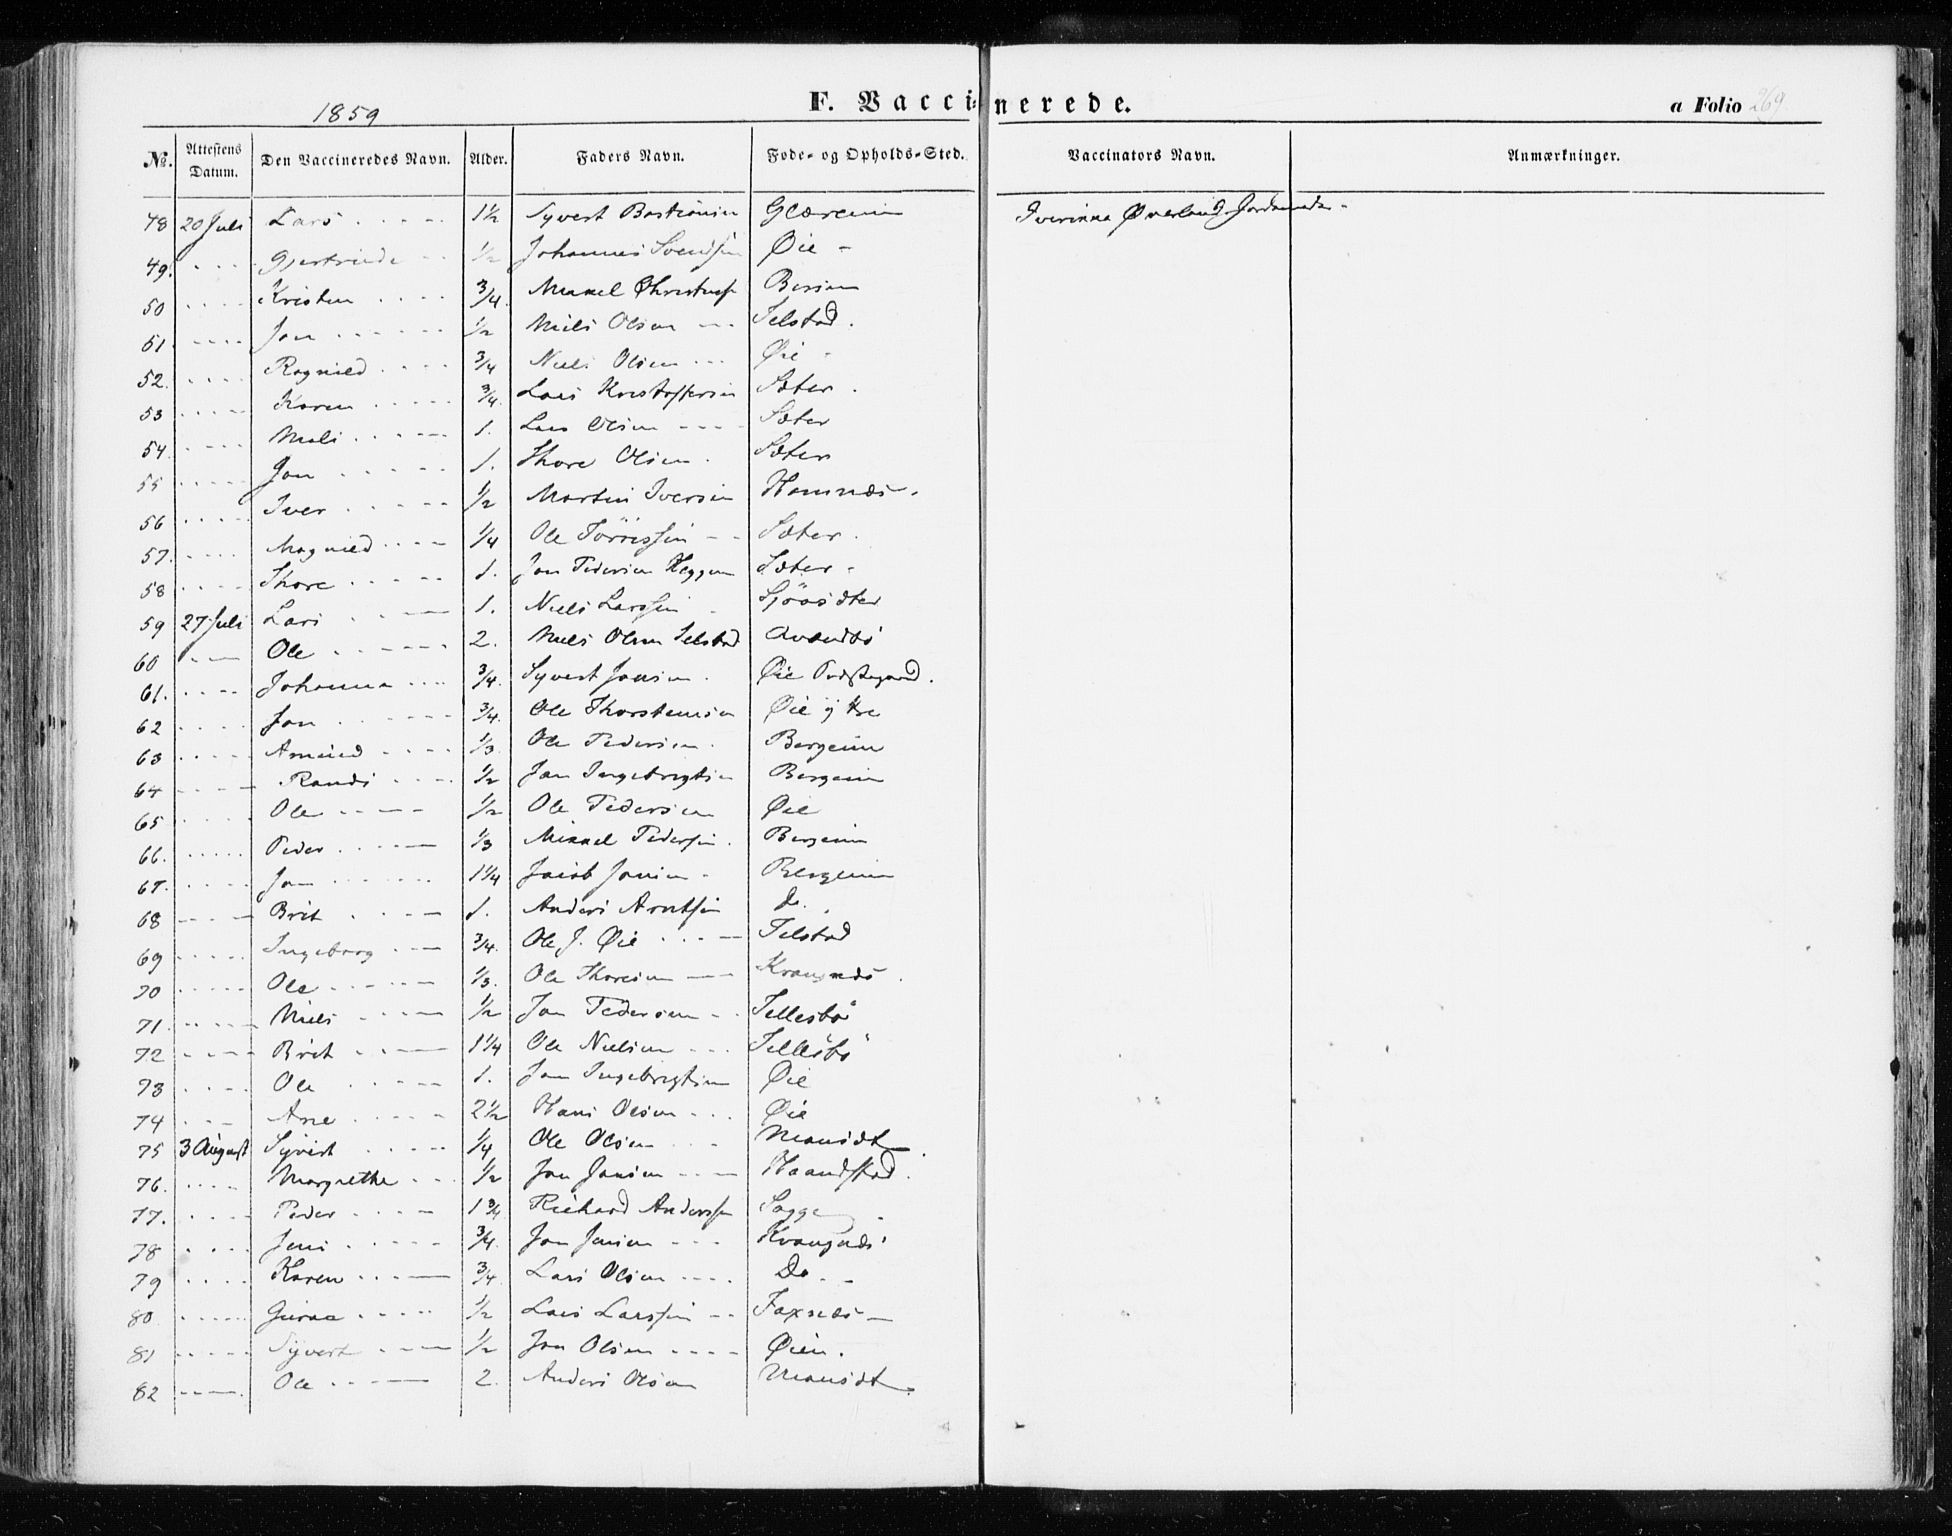 1859
F. Vaccinerede.
a Folio 269
No. Attestens Datum. Den Vaccineredes Navn. Alder. Faders Navn. Føde- og Opholds-Sted. Vaccinators Navn. Anmærkninger.
48 20 Juli Lars 1½ Syvert Glæreem Iverinna Øverland
49. Gjertrude ½ Johannes Svendsen Øie
50 Kristen ¾ Mikkel
51. Jon ½ Niels Olsen Telstad.
52. Ragnild ¾ Niels Olsen Øie
53 Karen ¾ Lars Kristoffersen Sæter.
54 Mali 1. Lars Olsen Sæter
55 Jon 1. Thore Olsen. Sæter
56 Iver ½ Martin Iversen Hamnæs
57. Magnild ¼ Ole Törrissen Sæter.
58 Thore 1. Jon Pedersen Heggem Sæter
59 27 Juli Lars 1. Niels Larssen
60 Ole 2. Niels Olsen Telstad
61. Johanna ¾. Syvert Jonsen. Øie
62 Jon ¾. Ole Thorstensen Øie
63 Arneied ⅓ Ole Pedersen. Bergeim
64 Randi ½ Jon Ingebrigtsen Bergeim
65 Ole ½ Ole Pedersen Øie
66. Peder ⅓ Mikkel Pedersen. Bergeim
67. Jon 1¼ Jacob Jonsen Bergeim
68 Brit 1. Anders Arntsen Do.
69 Ingeborg ¾. Ole J. Øie Telstad
70 Ole ⅓. Ole Thoresen Kvangnæs
71. Niels ½ Jon Pedersen Tellesbö
72 Brit 1¼ Ole Nielsen Tellesbö
73 Ole 1. Jon Ingebrigtsen Øie
74 Arne 2½ Hans Olsen Øie
75 3 August Syvert ¼ Ole Olsen
76. Margrethe ½ Jon Jonsen Haandstad.
77. Peder 1¾ Richard Anderssen Sagge
78 Jens ¾. Jon Jonsen Kvangnæs
79 Karen ¾. Lars Olsen Do.
80 Guraa ½ Lars Larssen Faxnæs
81 Syvert ½ Jon Olsen Øien.
82 Ole 2. Anders Olsen